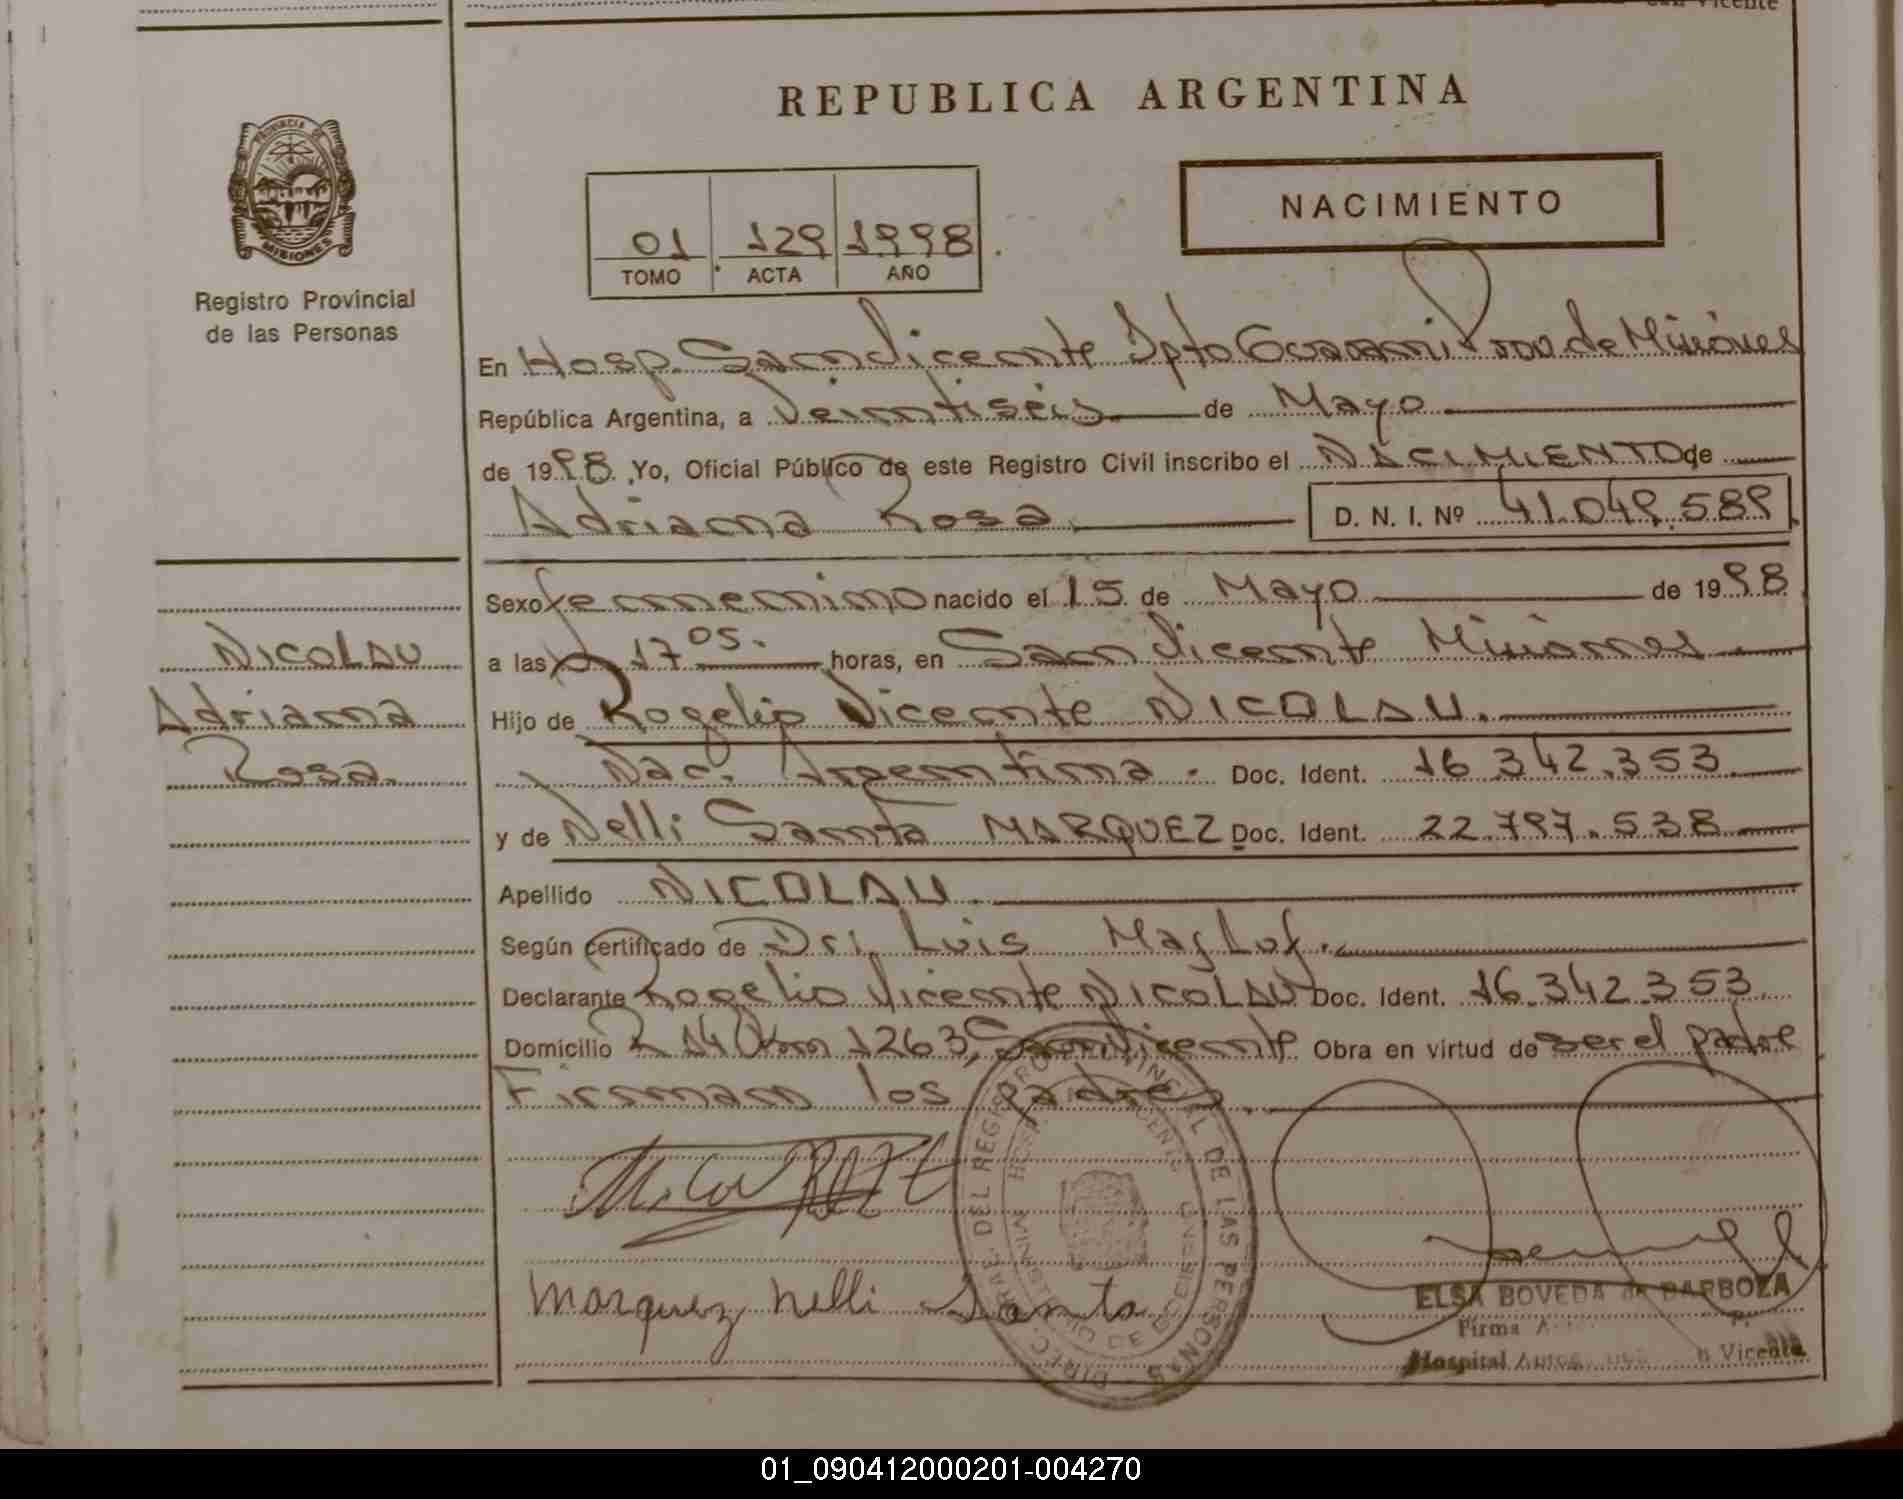 San Vicente
REPUBLICA ARGENTINA
PROVINCIA DE
MISIONES
Registro Provincial
de las Personas
01 129 1998
TOMO ACTA AÑO
NACIMIENTO
En Hosp. San Vicente Dpto Guarani Prov de Misiones
República Argentina, a Veintiséis de Mayo
de 1998. Yo, Oficial Público de este Registro Civil inscribo el NACIMIENTO de
Adriana Rosa D. N. I. Nº 41.049.589
Sexo femenino nacido el 15 de Mayo de 1998
a las 17 05. horas, en San Vicente Misiones
Hijo de Rogelio Vicente NICOLAU.
Nac. Argentina. Doc. Ident. 16.342.353
y de Nelli Santa MARQUEZ Doc. Ident. 22.797.538
Apellido NICOLAU.
Según certificado de Dr. Luis
Declarante Rogelio Vicente NICOLAU Doc. Ident. 16.342.353
Domicilio R 14 Km 1263, San Vicente Obra en virtud de ser el padre
Firman los padres.
NICOLAU
Adriana
Rosa
Marquez Nelli Santa
DIREC. GRAL. DEL REGISTRO PROVINCIAL DE LAS PERSONAS
ELSA BOVEDA de BARBOZA
Firma
Hospital Vicente
01_090412000201-004270